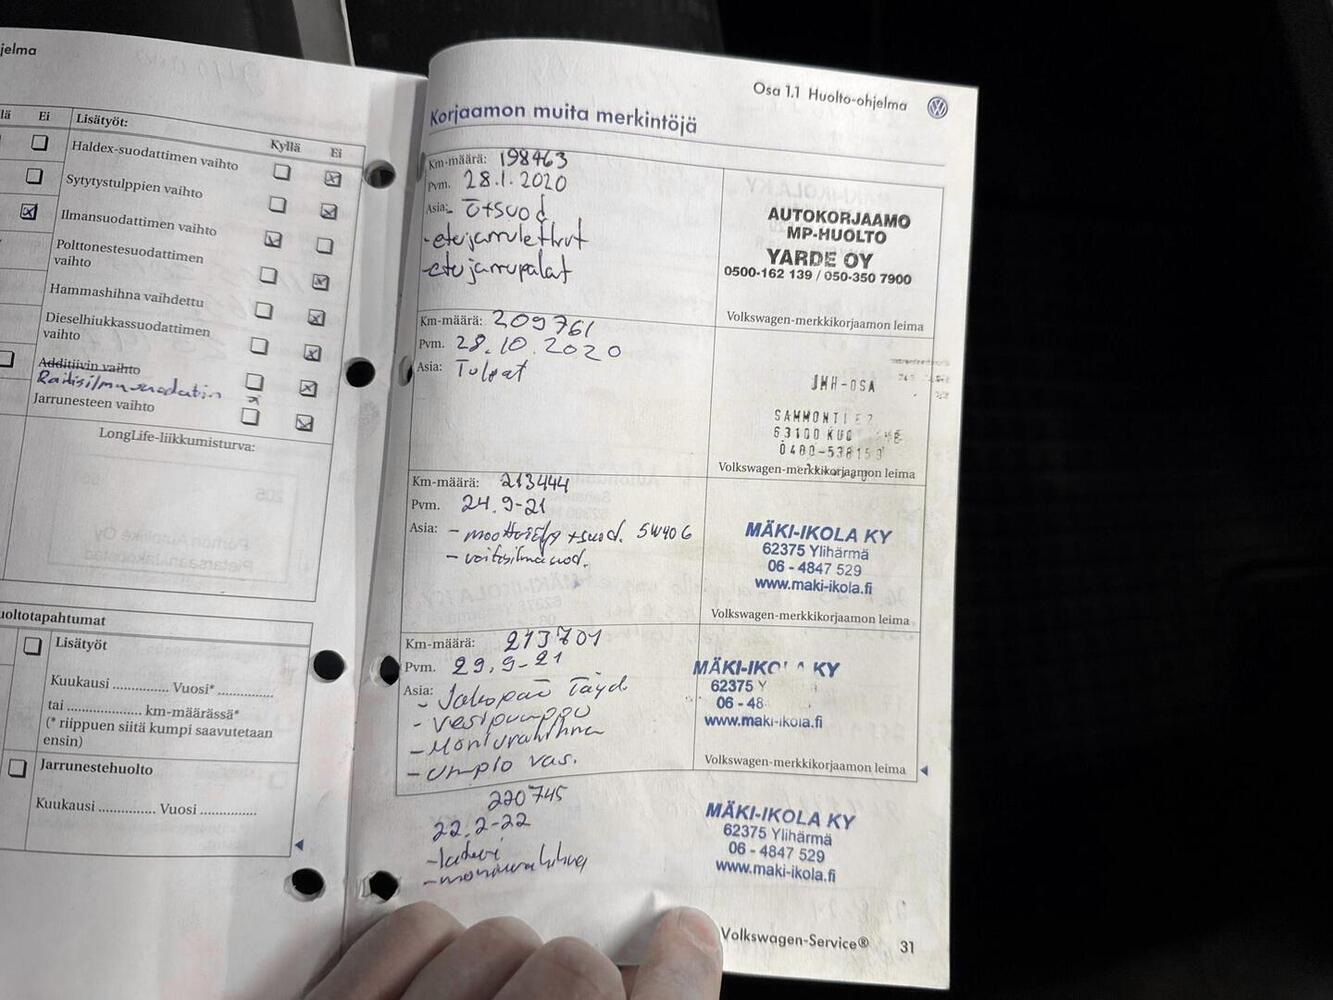 jelma
lä Ei Lisätyöt: Kyllä Ei
Haldex-suodattimen vaihto
Sytytystulppien vaihto
Ilmansuodattimen vaihto
Polttonestesuodattimen
vaihto
Hammashihna vaihdettu
Dieselhiukkassuodattimen
vaihto
Additiivin vaihto
Raitisilmasuodatin
Jarrunesteen vaihto
LongLife-liikkumisturva:
uoltotapahtumat
Lisätyöt
Kuukausi .............. Vuosi* ..............
tai ................... km-määrässä*
(* riippuen siitä kumpi saavutetaan
ensin)
Jarrunestehuolto
Kuukausi .............. Vuosi ..............
Osa 1.1 Huolto-ohjelma
Korjaamon muita merkintöjä
Km-määrä: 198463
Pvm. 28.1.2020
Asia:
- etujarrulettut
- etujarrupalat
AUTOKORJAAMO
MP-HUOLTO
YARDE OY
0500-162 139 / 050-350 7900
Volkswagen-merkkikorjaamon leima
Km-määrä: 209761
Pvm. 28.10.2020
Asia: Tulpat
JMH-OSA
SAMMONTIE
63100 KUO
0400-538159
Volkswagen-merkkikorjaamon leima
Km-määrä: 213444
Pvm. 24.9-21
Asia: - moottoriöljy + suod. 5W40 6
- raitisilmasuod.
MÄKI-IKOLA KY
62375 Ylihärmä
06 - 4847 529
www.maki-ikola.fi
Volkswagen-merkkikorjaamon leima
Km-määrä: 213701
Pvm. 29.9-21
Asia: - Jakopää Täyd.
- vesipumppu
- Moniurahihna
- vas.
MÄKI-IKOLA KY
62375 Y
06 - 48
www.maki-ikola.fi
Volkswagen-merkkikorjaamon leima
220745
22.2-22
- laturi
- moniurahihna
MÄKI-IKOLA KY
62375 Ylihärmä
06 - 4847 529
www.maki-ikola.fi
Volkswagen-Service® 31